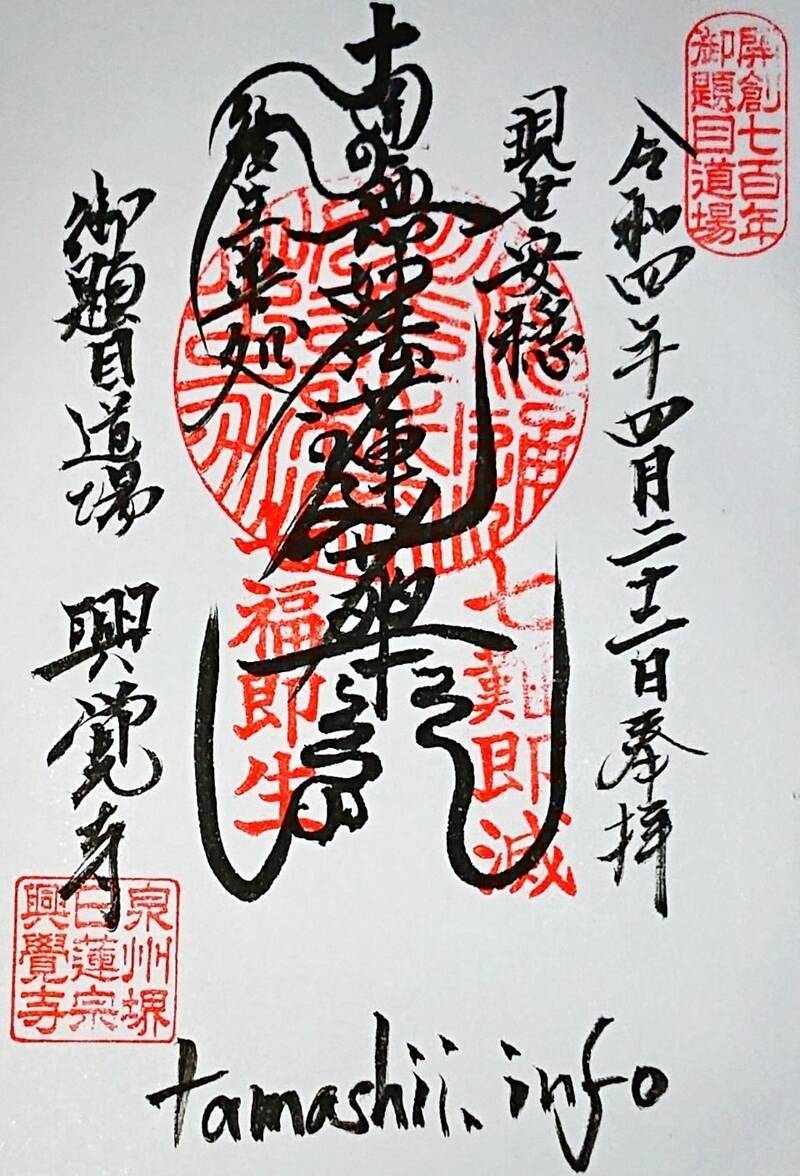 開創七百年
御題目道場
令和四年四月二十二日奉拝
現世安穏
南無妙法蓮華経
後生善処
七難即滅
七福即生
御題目道場 興覚寺
泉州堺
白蓮宗
興覺寺
tamashii.info